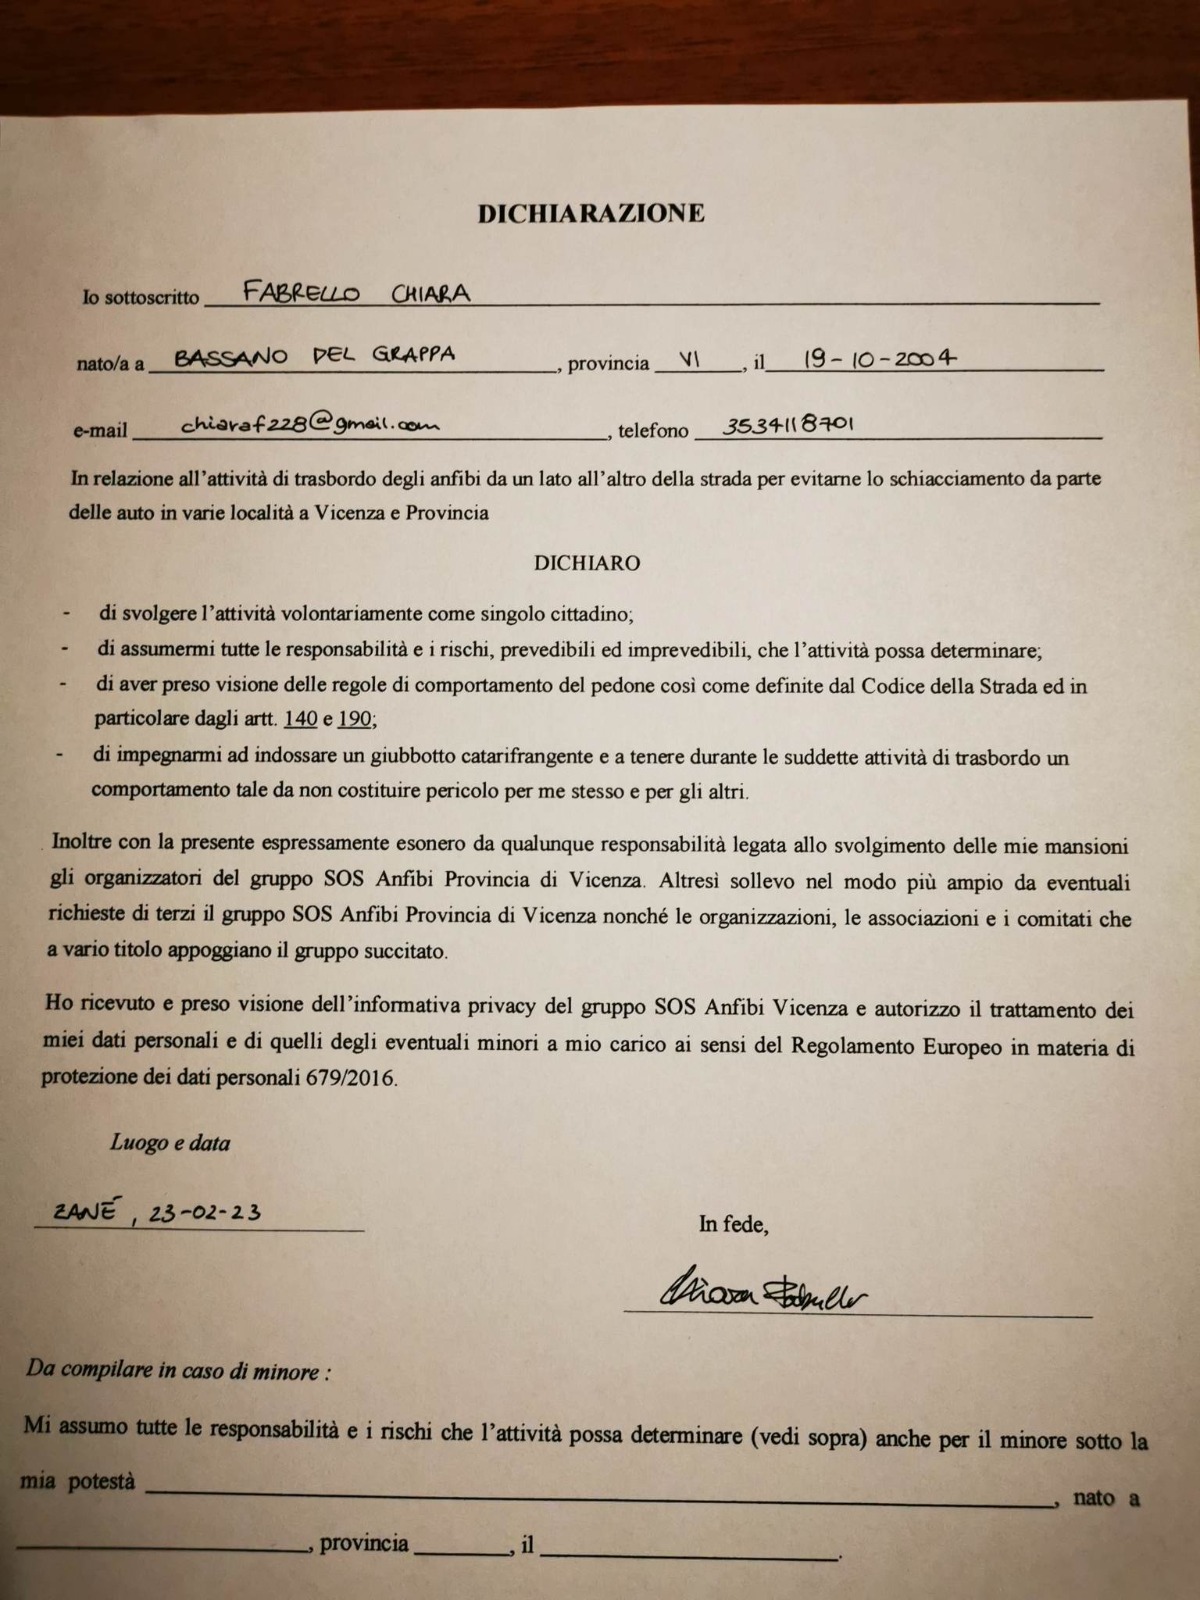 DICHIARAZIONE
Io sottoscritto FABRELLO CHIARA
nato/a a BASSANO DEL GRAPPA, provincia VI, il 19-10-2004
e-mail chiaraf228@gmail.com, telefono 3534118701
In relazione all'attività di trasbordo degli anfibi da un lato all'altro della strada per evitarne lo schiacciamento da parte
delle auto in varie località a Vicenza e Provincia
DICHIARO
- di svolgere l'attività volontariamente come singolo cittadino;
- di assumermi tutte le responsabilità e i rischi, prevedibili ed imprevedibili, che l'attività possa determinare;
- di aver preso visione delle regole di comportamento del pedone così come definite dal Codice della Strada ed in
particolare dagli artt. 140 e 190;
- di impegnarmi ad indossare un giubbotto catarifrangente e a tenere durante le suddette attività di trasbordo un
comportamento tale da non costituire pericolo per me stesso e per gli altri.
Inoltre con la presente espressamente esonero da qualunque responsabilità legata allo svolgimento delle mie mansioni
gli organizzatori del gruppo SOS Anfibi Provincia di Vicenza. Altresì sollevo nel modo più ampio da eventuali
richieste di terzi il gruppo SOS Anfibi Provincia di Vicenza nonché le organizzazioni, le associazioni e i comitati che
a vario titolo appoggiano il gruppo succitato.
Ho ricevuto e preso visione dell'informativa privacy del gruppo SOS Anfibi Vicenza e autorizzo il trattamento dei
miei dati personali e di quelli degli eventuali minori a mio carico ai sensi del Regolamento Europeo in materia di
protezione dei dati personali 679/2016.
Luogo e data
ZANÉ, 23-02-23
In fede,
Chiara Fabrello
Da compilare in caso di minore :
Mi assumo tutte le responsabilità e i rischi che l'attività possa determinare (vedi sopra) anche per il minore sotto la
mia potestà , nato a
, provincia , il .